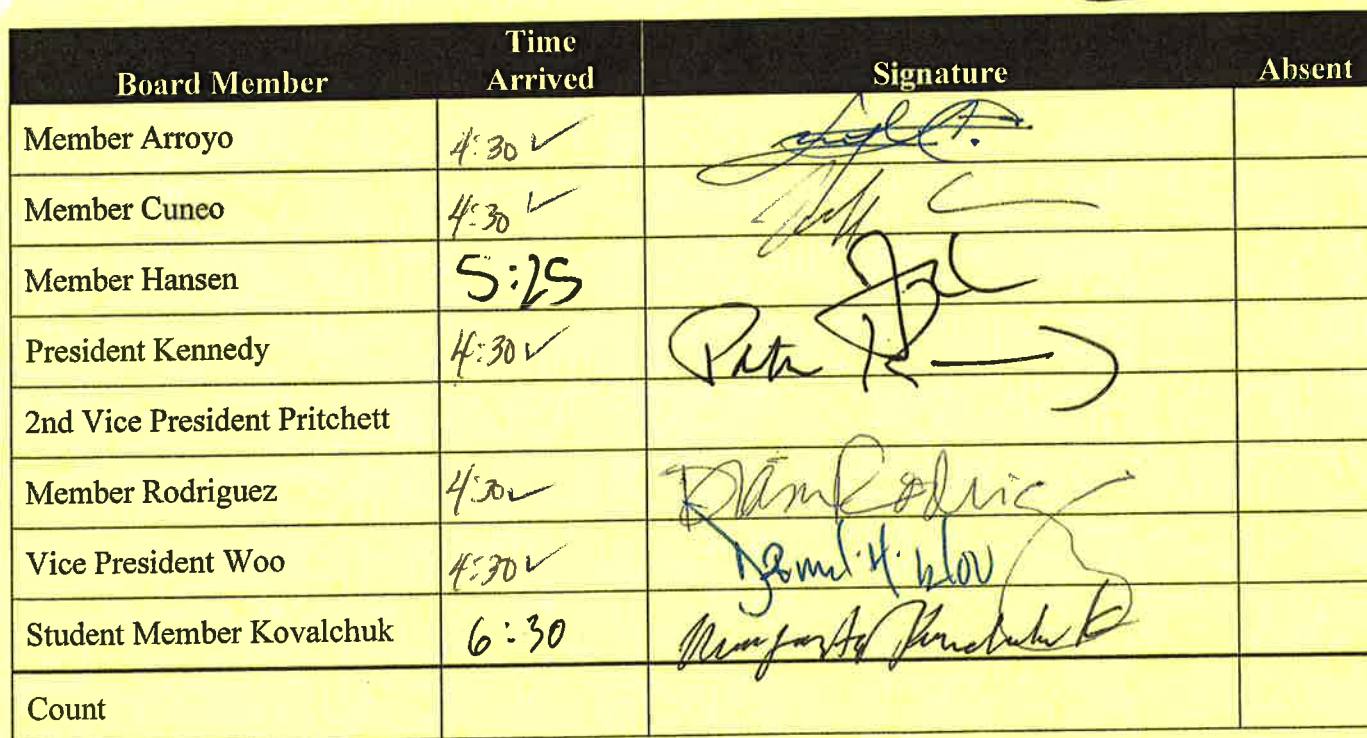 Board Member Time Arrived Signature Absent
Member Arroyo 4:30 ✓
Member Cuneo 4:30 ✓
Member Hansen 5:25
President Kennedy 4:30 ✓
2nd Vice President Pritchett
Member Rodriguez 4:30 ✓
Vice President Woo 4:30 ✓
Student Member Kovalchuk 6:30
Count